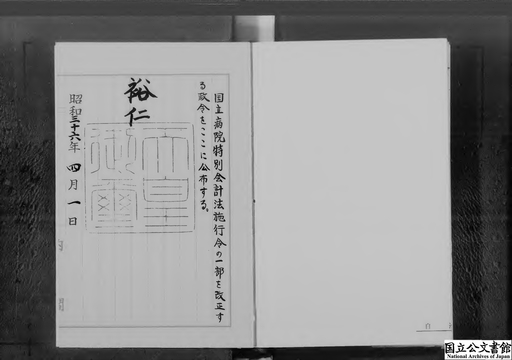 国立病院特別会計法施行令の一部を改正す
る政令をここに公布する。
裕仁
天皇
御璽
昭和三十六年 四月一日
国立公文書館
National Archives of Japan